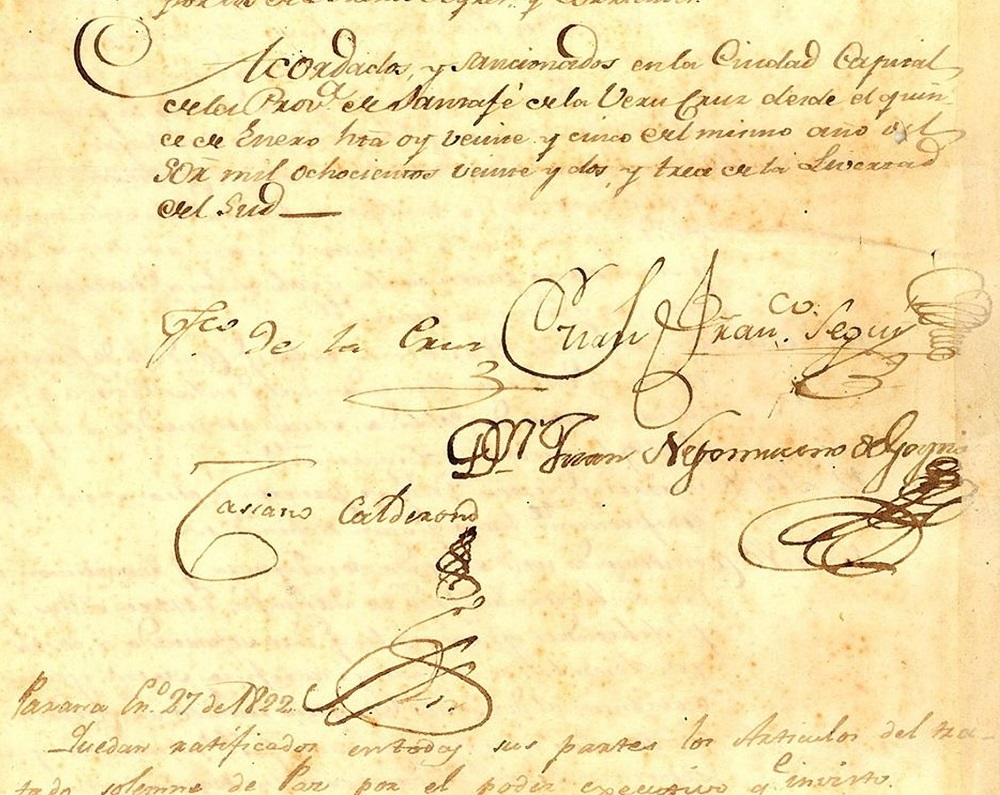 Acordados, y sancionados en la Ciudad Capital
de la Prov.ª de Santafé de la Vera Cruz desde el quin-
ce de Enero hta oy veinte y cinco del mismo año del
Sôr mil ochocientos veinte y dos, y trece de la Livertad
del Sud
Fco de la Cruz
Juan Fran.co Seguí
Juan Nepomuceno de Goyni
Casiano Calderon
Parana En.o 27 de 1822.
Quedan ratificados en todas sus partes los Articulos del tra-
tado solemne de Paz por el poder executivo q.e invisto.